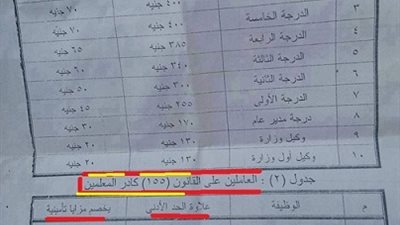 ٣ الدرجة الخامسة ٤٠٠ جنيه ٧٠ جنيه
٤ الدرجة الرابعة ٣٨٥ جنيه ٦٥ جنيه
٥ الدرجة الثالثة ٣٤٠ جنيه ٦٠ جنيه
٦ الدرجة الثانية ٣٠٠ جنيه ٥٠ جنيه
٧ الدرجة الأولى ٢٥٥ جنيه ٤٥ جنيه
٨ درجة مدير عام ١٧٠ جنيه ٣٠ جنيه
٩ وكيل وزارة ١٣٠ جنيه ٢٠ جنيه
١٠ وكيل أول وزارة ١٣٠ جنيه ٢٠ جنيه
جدول (٢) : العاملين على القانون (١٥٥) كادر المعلمين
م الوظيفة علاوة الحد الأدنى يخصم مزايا تأمينية